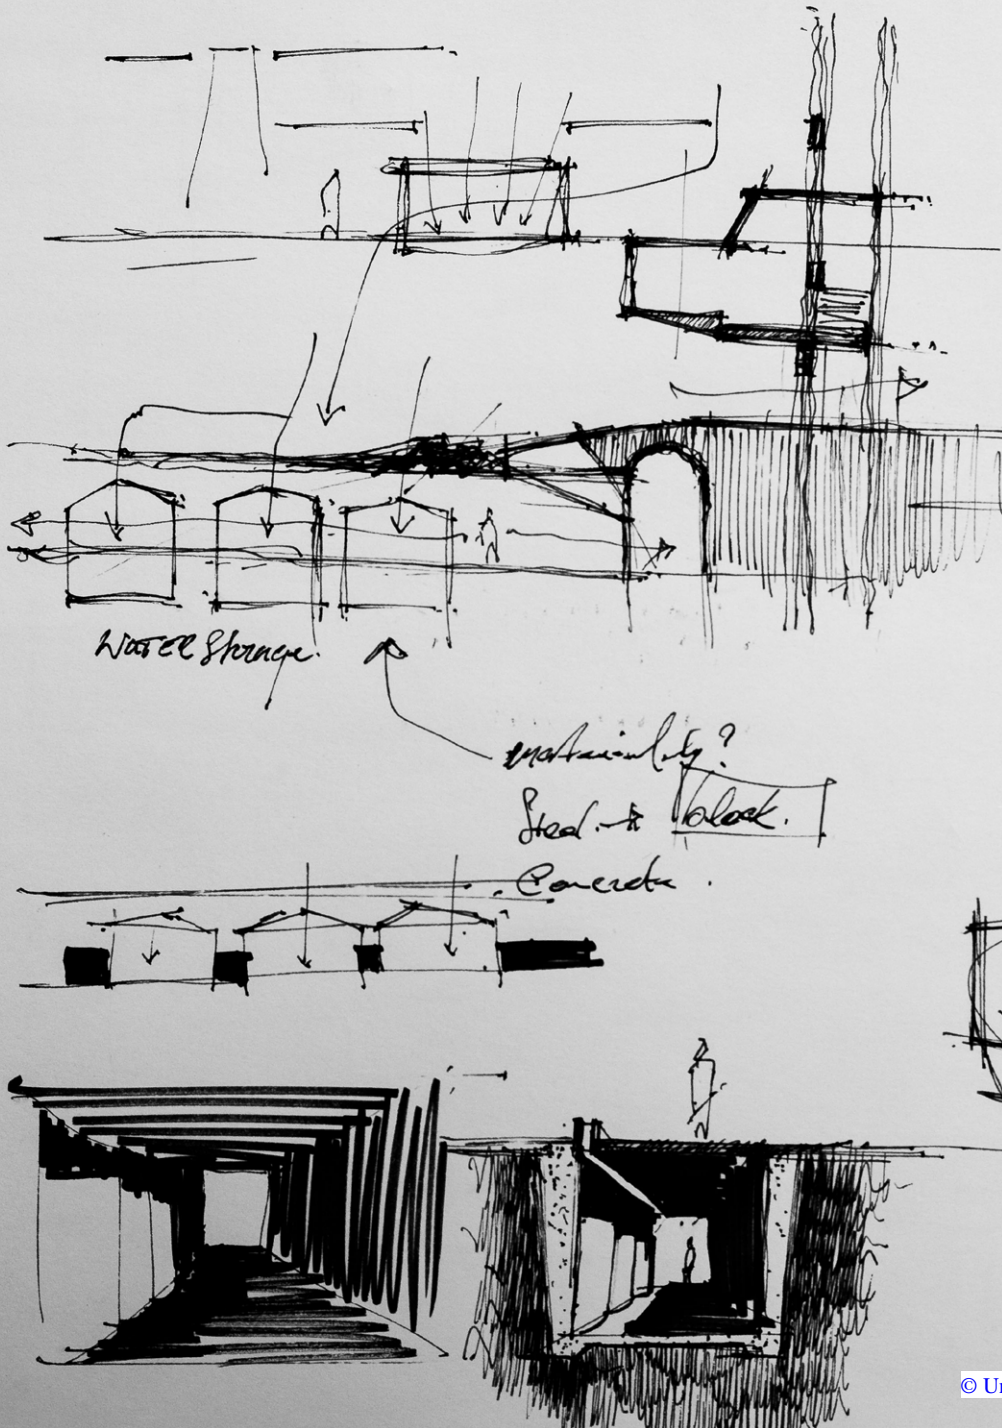 WATER Storage.
materiality?
Steel. → block.
Concrete.
© Un